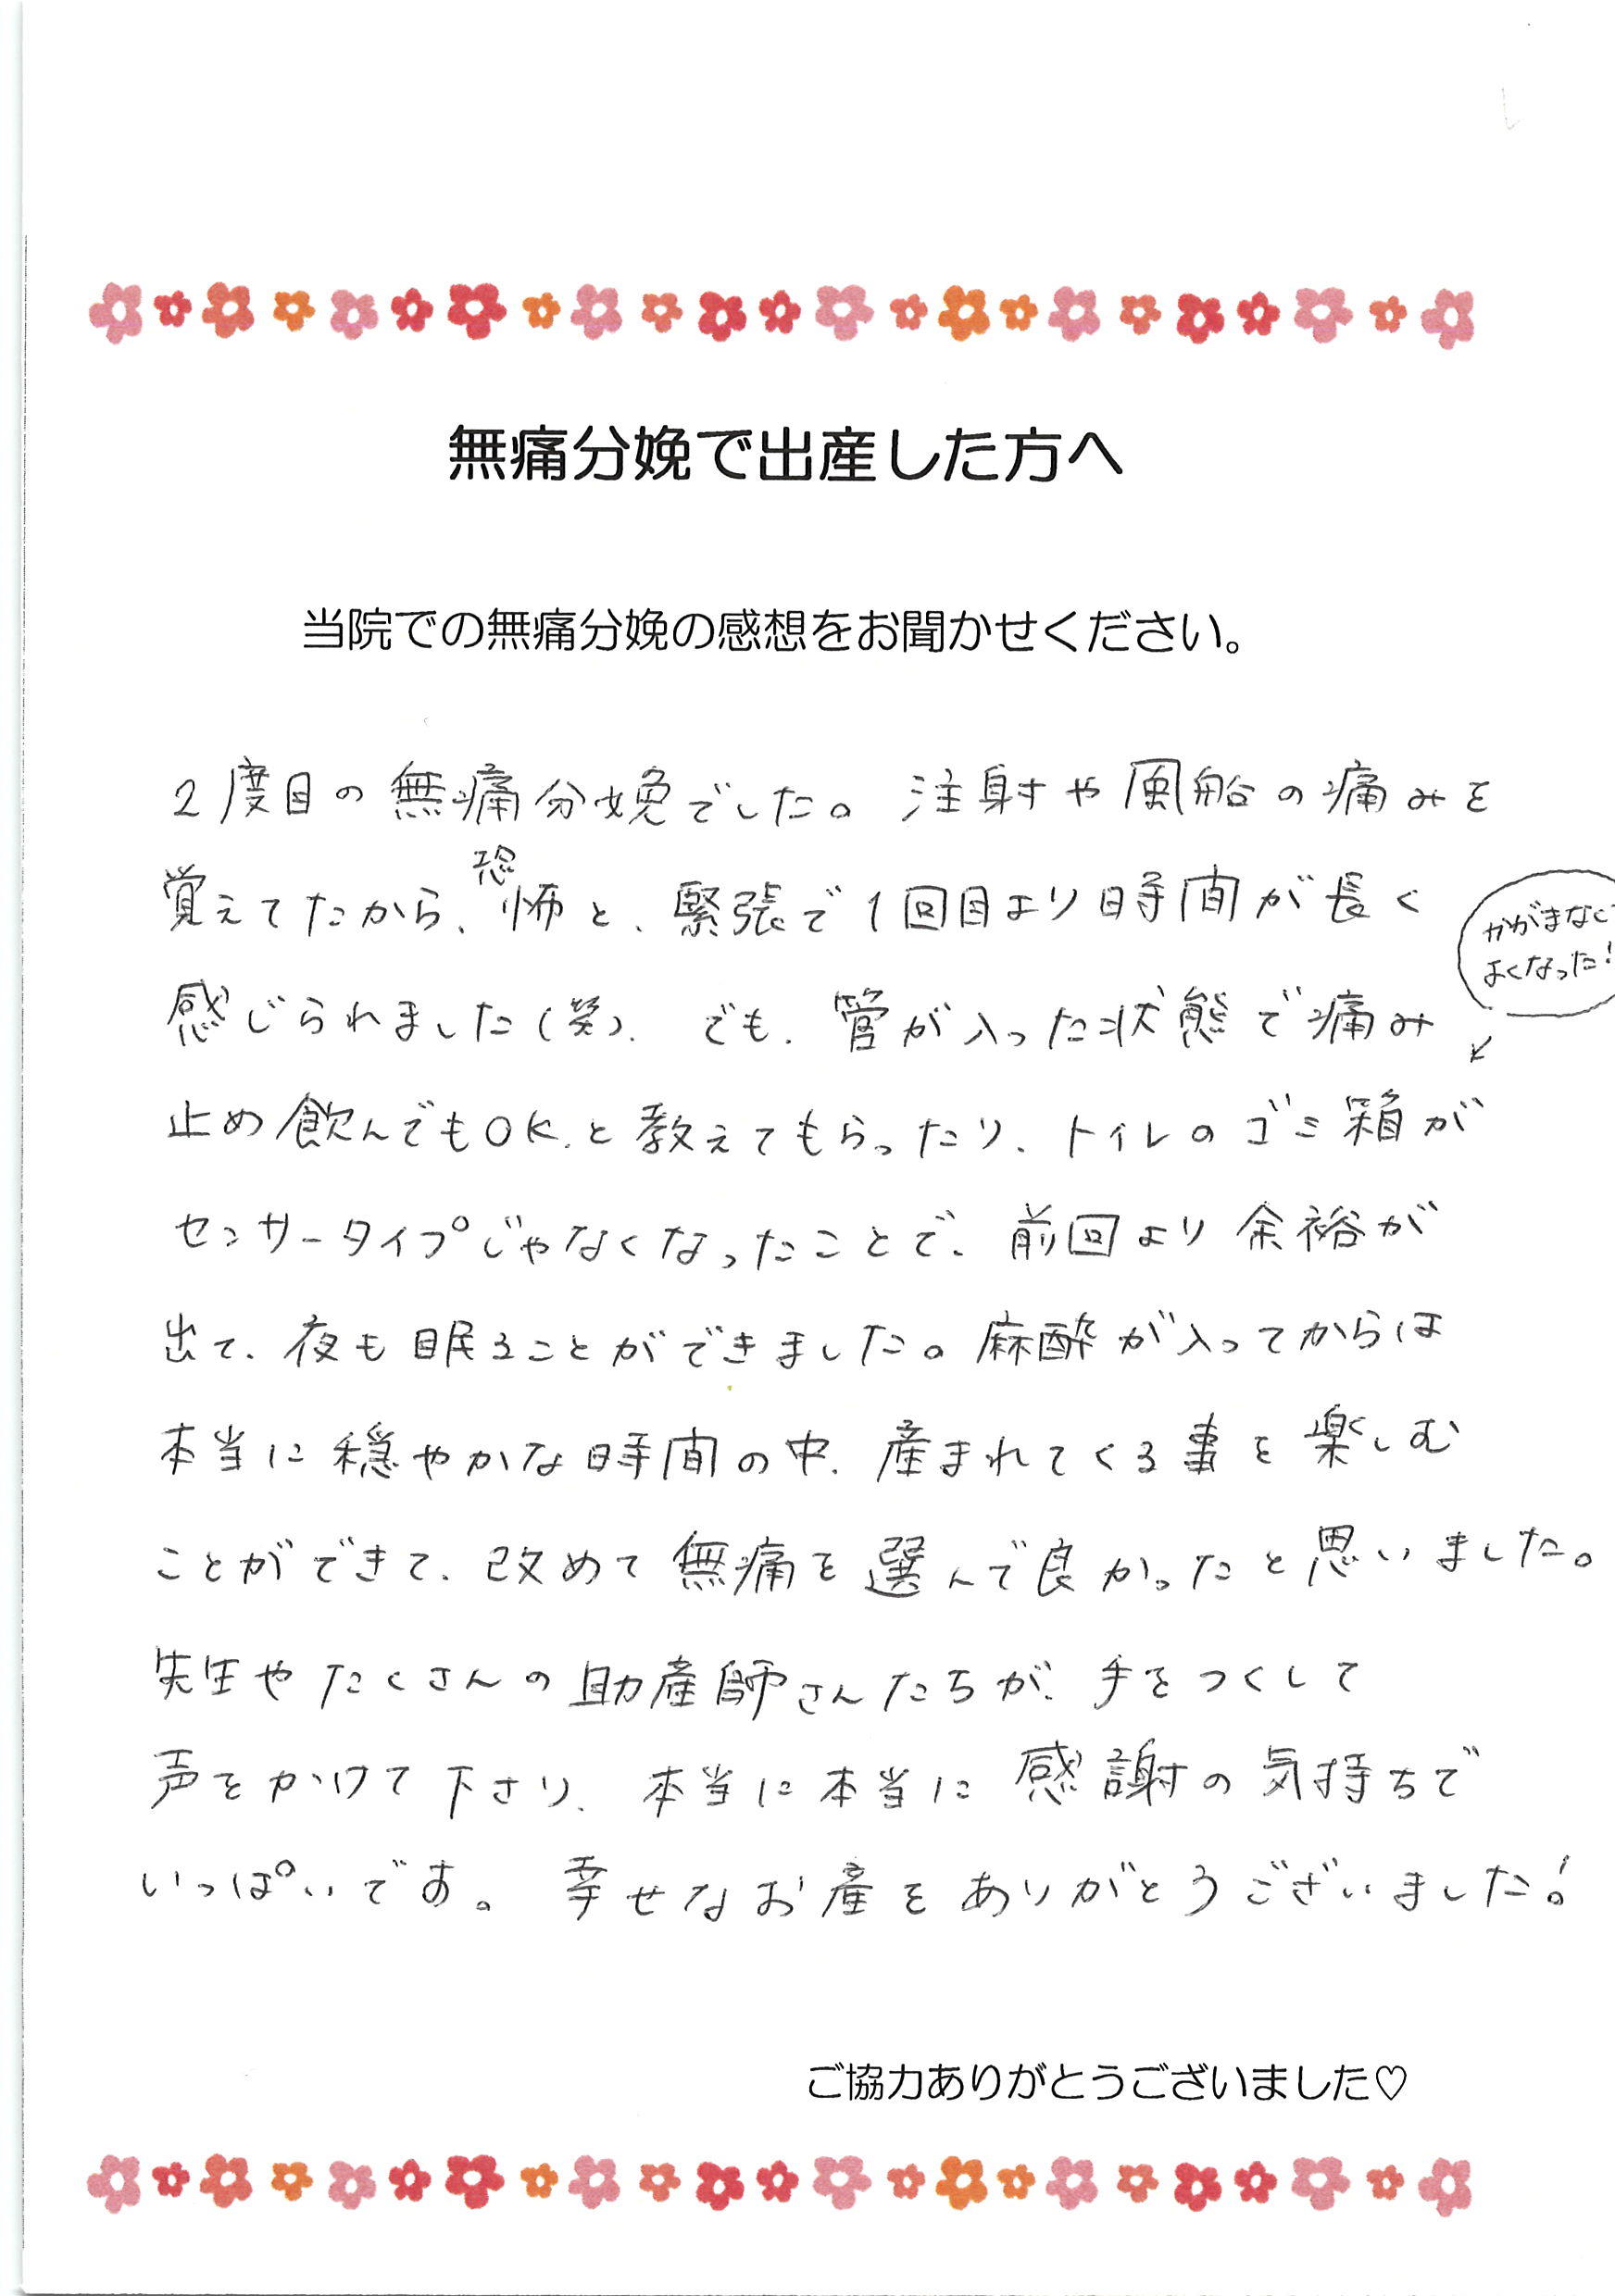 無痛分娩で出産した方へ
当院での無痛分娩の感想をお聞かせください。
2度目の無痛分娩でした。注射や風船の痛みを
覚えてたから、恐怖と、緊張で1回目より時間が長く
感じられました(笑)、でも、管が入った状態で痛み
かがまなくて
よくなった!
止め飲んでもOK、と教えてもらったり、トイレのゴミ箱が
センサータイプじゃなくなったことで、前回より余裕が
出て、夜も眠ることができました。麻酔が入ってからは
本当に穏やかな時間の中、産まれてくる事を楽しむ
ことができて、改めて無痛を選んで良かったと思いました。
先生やたくさんの助産師さんたちが、手をつくして
声をかけて下さり、本当に本当に感謝の気持ちで
いっぱいです。幸せなお産をありがとうございました!
ご協力ありがとうございました♡